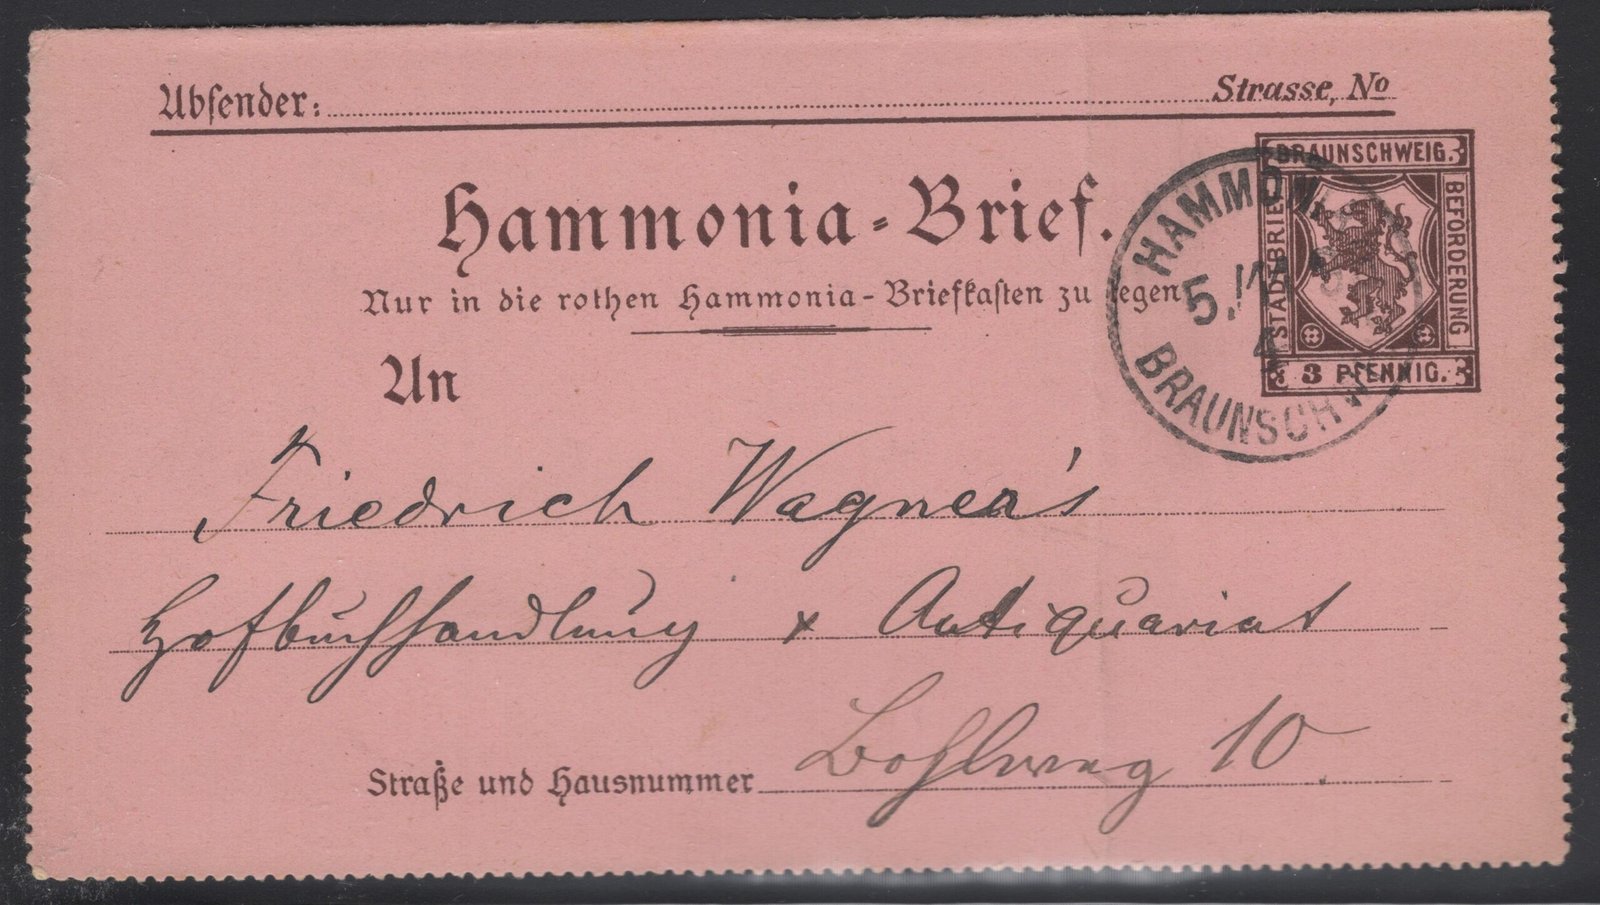 Absender: Strasse, No
Hammonia-Brief.
Nur in die rothen Hammonia-Briefkasten zu legen
BRAUNSCHWEIG.
STADTBRIEF
BEFORDERUNG
3 PFENNIG.
HAMMON
5.
4
BRAUNSCHW
An
Friedrich Wagner's
Hofbuchhandlung & Antiquariat
Straße und Hausnummer Bohlweg 10.